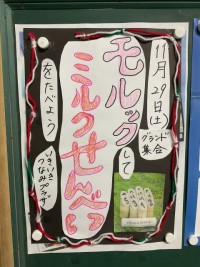 11月29日(土)
グランド
集合
モルックして
ミルクせんべい
をたべよう
いきいき
つなみプラザ